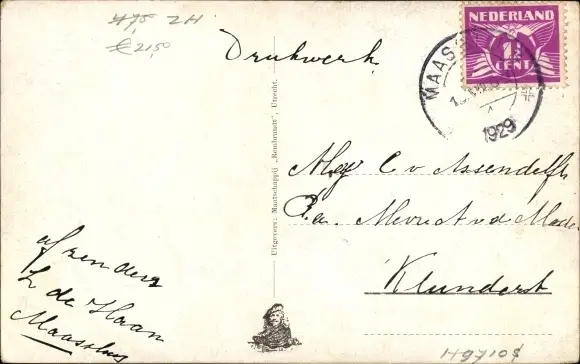 47,50 ZH
€ 21,50
Drukwerk
NEDERLAND
1½
CENT
MAASSL
1929
Mej C v Assendelft
P.a. Mevr. A v d Made
Klundert
afzender
L de Haan
Maassluis
Uitgevers: Maatschappij „Rembrandt", Utrecht.
H9710$